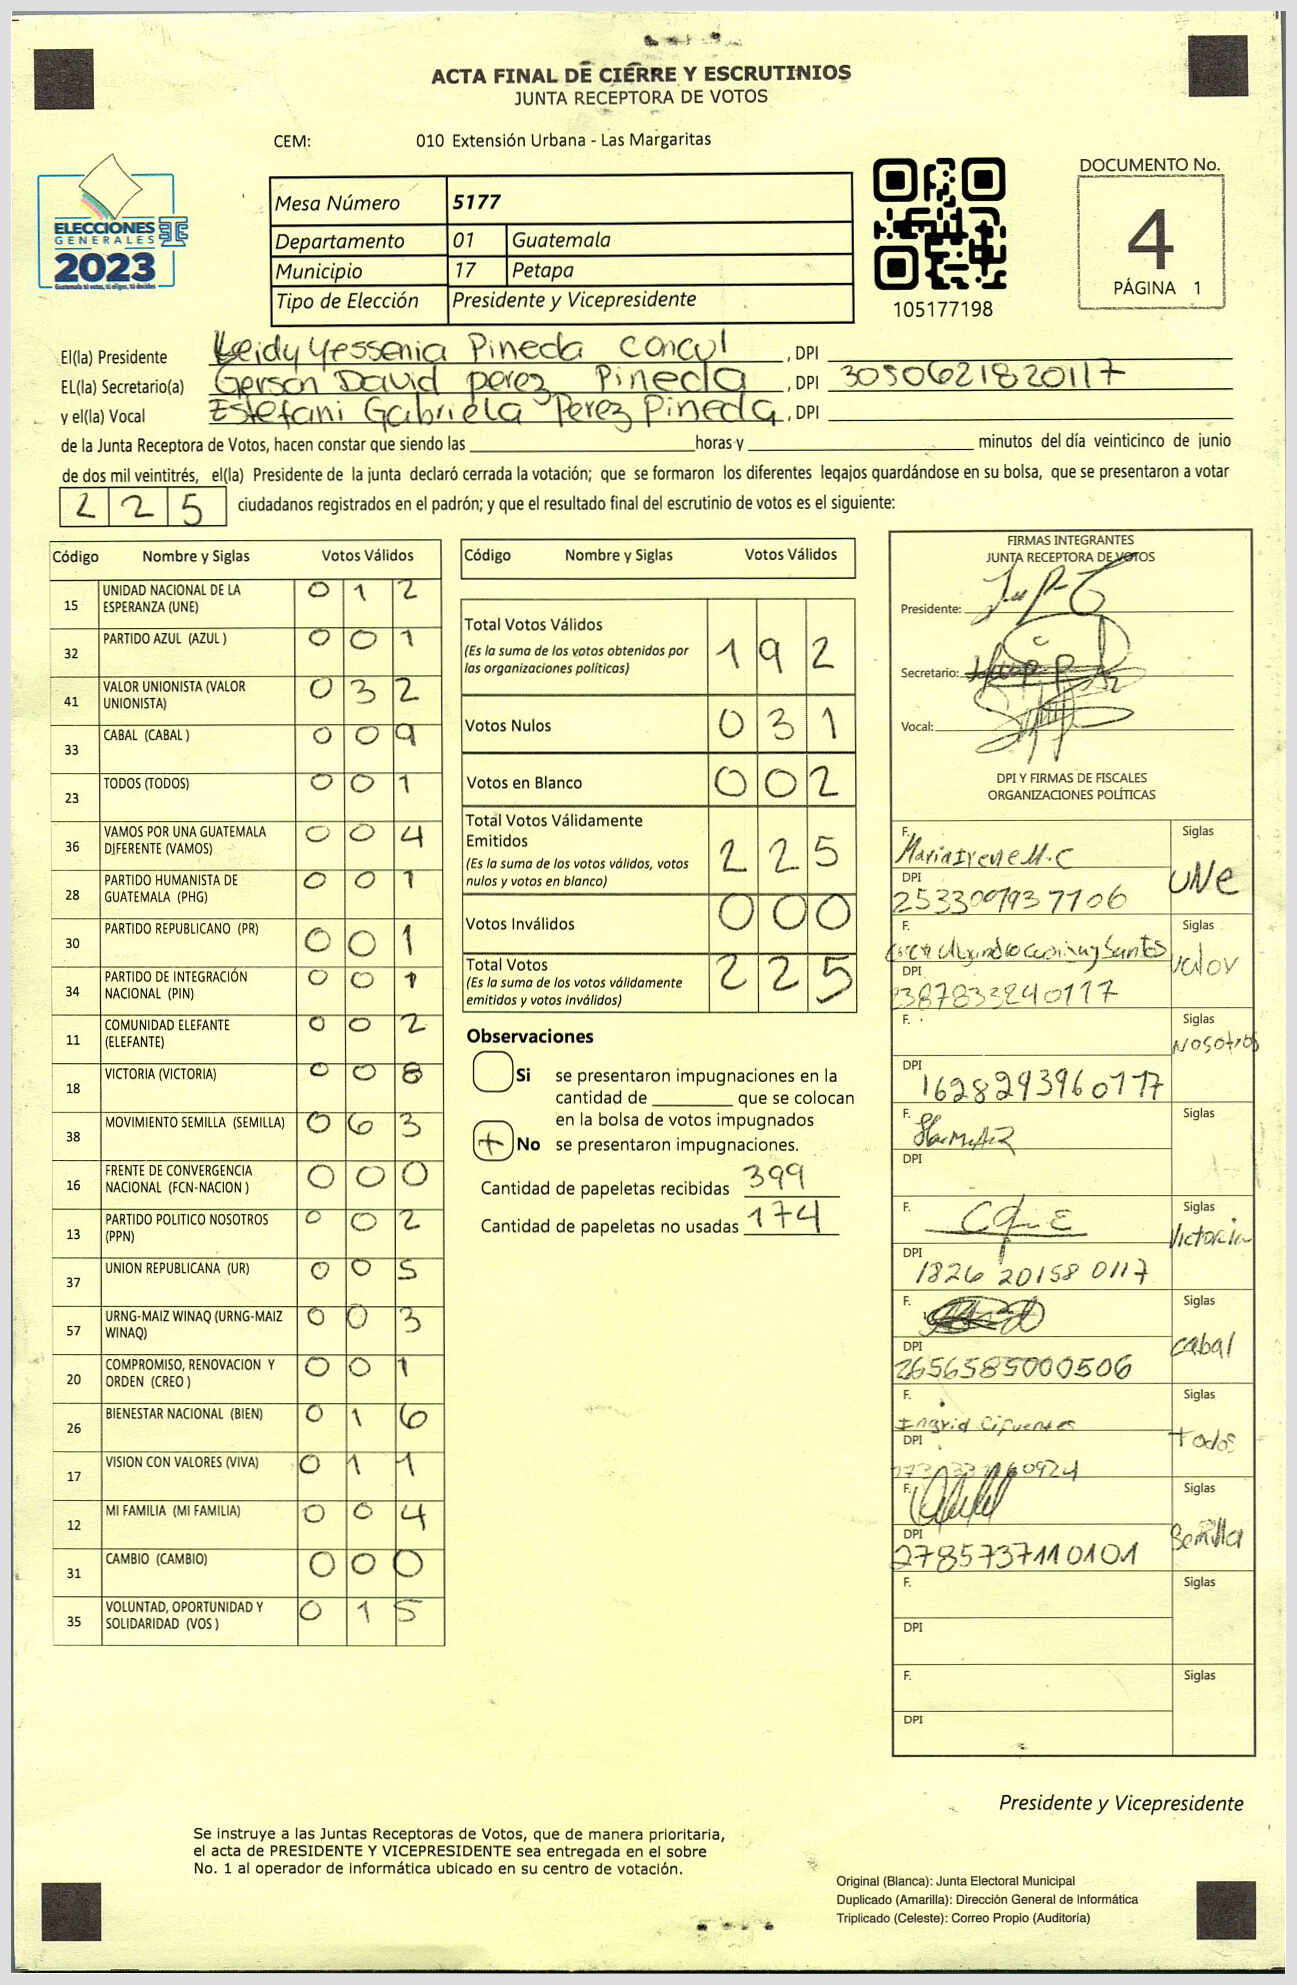 ACTA FINAL DE CIERRE Y ESCRUTINIOS
JUNTA RECEPTORA DE VOTOS
CEM: 010 Extensión Urbana - Las Margaritas
ELECCIONES
GENERALES
2023
Guatemala tú votas, tú eliges, tú decides
Mesa Número 5177
Departamento 01 Guatemala
Municipio 17 Petapa
Tipo de Elección Presidente y Vicepresidente
105177198
DOCUMENTO No.
4
PÁGINA 1
El(la) Presidente Leidy Yessenia Pineda Concul , DPI
EL(la) Secretario(a) Gerson David perez Pineda , DPI 3050621820117
y el(la) Vocal Estefani Gabriela Perez Pineda , DPI
de la Junta Receptora de Votos, hacen constar que siendo las horas y minutos del día veinticinco de junio
de dos mil veintitrés, el(la) Presidente de la junta declaró cerrada la votación; que se formaron los diferentes legajos guardándose en su bolsa, que se presentaron a votar
225 ciudadanos registrados en el padrón; y que el resultado final del escrutinio de votos es el siguiente:
Código Nombre y Siglas Votos Válidos
15 UNIDAD NACIONAL DE LA ESPERANZA (UNE) 0 1 2
32 PARTIDO AZUL (AZUL ) 0 0 1
41 VALOR UNIONISTA (VALOR UNIONISTA) 0 3 2
33 CABAL (CABAL ) 0 0 9
23 TODOS (TODOS) 0 0 1
36 VAMOS POR UNA GUATEMALA DIFERENTE (VAMOS) 0 0 4
28 PARTIDO HUMANISTA DE GUATEMALA (PHG) 0 0 1
30 PARTIDO REPUBLICANO (PR) 0 0 1
34 PARTIDO DE INTEGRACIÓN NACIONAL (PIN) 0 0 1
11 COMUNIDAD ELEFANTE (ELEFANTE) 0 0 2
18 VICTORIA (VICTORIA) 0 0 8
38 MOVIMIENTO SEMILLA (SEMILLA) 0 6 3
16 FRENTE DE CONVERGENCIA NACIONAL (FCN-NACION ) 0 0 0
13 PARTIDO POLITICO NOSOTROS (PPN) 0 0 2
37 UNION REPUBLICANA (UR) 0 0 5
57 URNG-MAIZ WINAQ (URNG-MAIZ WINAQ) 0 0 3
20 COMPROMISO, RENOVACION Y ORDEN (CREO ) 0 0 1
26 BIENESTAR NACIONAL (BIEN) 0 1 6
17 VISION CON VALORES (VIVA) 0 1 1
12 MI FAMILIA (MI FAMILIA) 0 0 4
31 CAMBIO (CAMBIO) 0 0 0
35 VOLUNTAD, OPORTUNIDAD Y SOLIDARIDAD (VOS ) 0 1 5
Código Nombre y Siglas Votos Válidos
Total Votos Válidos 1 9 2
(Es la suma de los votos obtenidos por
las organizaciones políticas)
Votos Nulos 0 3 1
Votos en Blanco 0 0 2
Total Votos Válidamente
Emitidos 2 2 5
(Es la suma de los votos válidos, votos
nulos y votos en blanco)
Votos Inválidos 0 0 0
Total Votos 2 2 5
(Es la suma de los votos válidamente
emitidos y votos inválidos)
Observaciones
Si se presentaron impugnaciones en la
cantidad de que se colocan
en la bolsa de votos impugnados
No se presentaron impugnaciones.
Cantidad de papeletas recibidas 399
Cantidad de papeletas no usadas 174
FIRMAS INTEGRANTES
JUNTA RECEPTORA DE VOTOS
Presidente:
Secretario:
Vocal:
DPI Y FIRMAS DE FISCALES
ORGANIZACIONES POLÍTICAS
F. Maria Irene M.C Siglas
DPI UNe
2533007937106
F. Siglas
DPI valor
2387833240117
F. Siglas
Nosotros
DPI
1628293960117
F. Siglas
DPI
F. Siglas
Victoria
DPI
1826 20158 0117
F. Siglas
DPI cabal
2656585000506
F. Siglas
Ingrid Cifuentes
DPI todos
F. Siglas
DPI Semilla
2785737110101
F. Siglas
DPI
F. Siglas
DPI
Presidente y Vicepresidente
Se instruye a las Juntas Receptoras de Votos, que de manera prioritaria,
el acta de PRESIDENTE Y VICEPRESIDENTE sea entregada en el sobre
No. 1 al operador de informática ubicado en su centro de votación.
Original (Blanca): Junta Electoral Municipal
Duplicado (Amarilla): Dirección General de Informática
Triplicado (Celeste): Correo Propio (Auditoría)